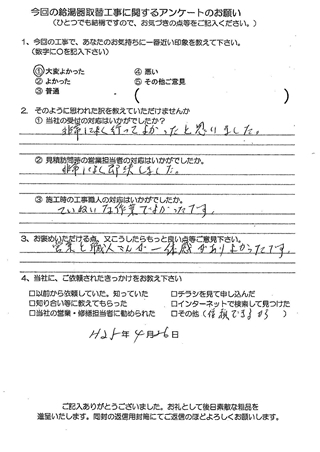 今回の給湯器取替工事に関するアンケートのお願い
(ひとつでも結構ですので、お気づきの点等をご記入ください。)
1、今回の工事で、あなたのお気持ちに一番近い印象を教えて下さい。
(数字に〇を記入下さい)
①大変よかった ④悪い
②よかった ⑤その他ご意見
③普通 ( )
2、そのように思われた訳を教えていただけませんか
① 当社の受付の対応はいかがでしたか?
非常によく行ってよかったと思いました。
② 見積訪問時の営業担当者の対応はいかがでしたか。
非常によく しました。
③ 施工時の工事職人の対応はいかがでしたか。
ていねいな作業でよかったです。
3、お褒めいただける点、又こうしたらもっと良い点等ご意見下さい。
営業と職人さんが一体感がありよかったです。
4、当社に、ご依頼されたきっかけをお教え下さい
□以前から依頼していた。知っていた □チラシを見て申し込んだ
□知り合い等に教えてもらった □インターネットで検索して見つけた
□当社の営業・修繕担当者に勧められた □その他(信頼できるから)
H25年4月26日
ご記入ありがとうございました。お礼として後日素敵な粗品を
進呈いたします。同封の返信用封筒にてご返信のほどよろしくお願いします。